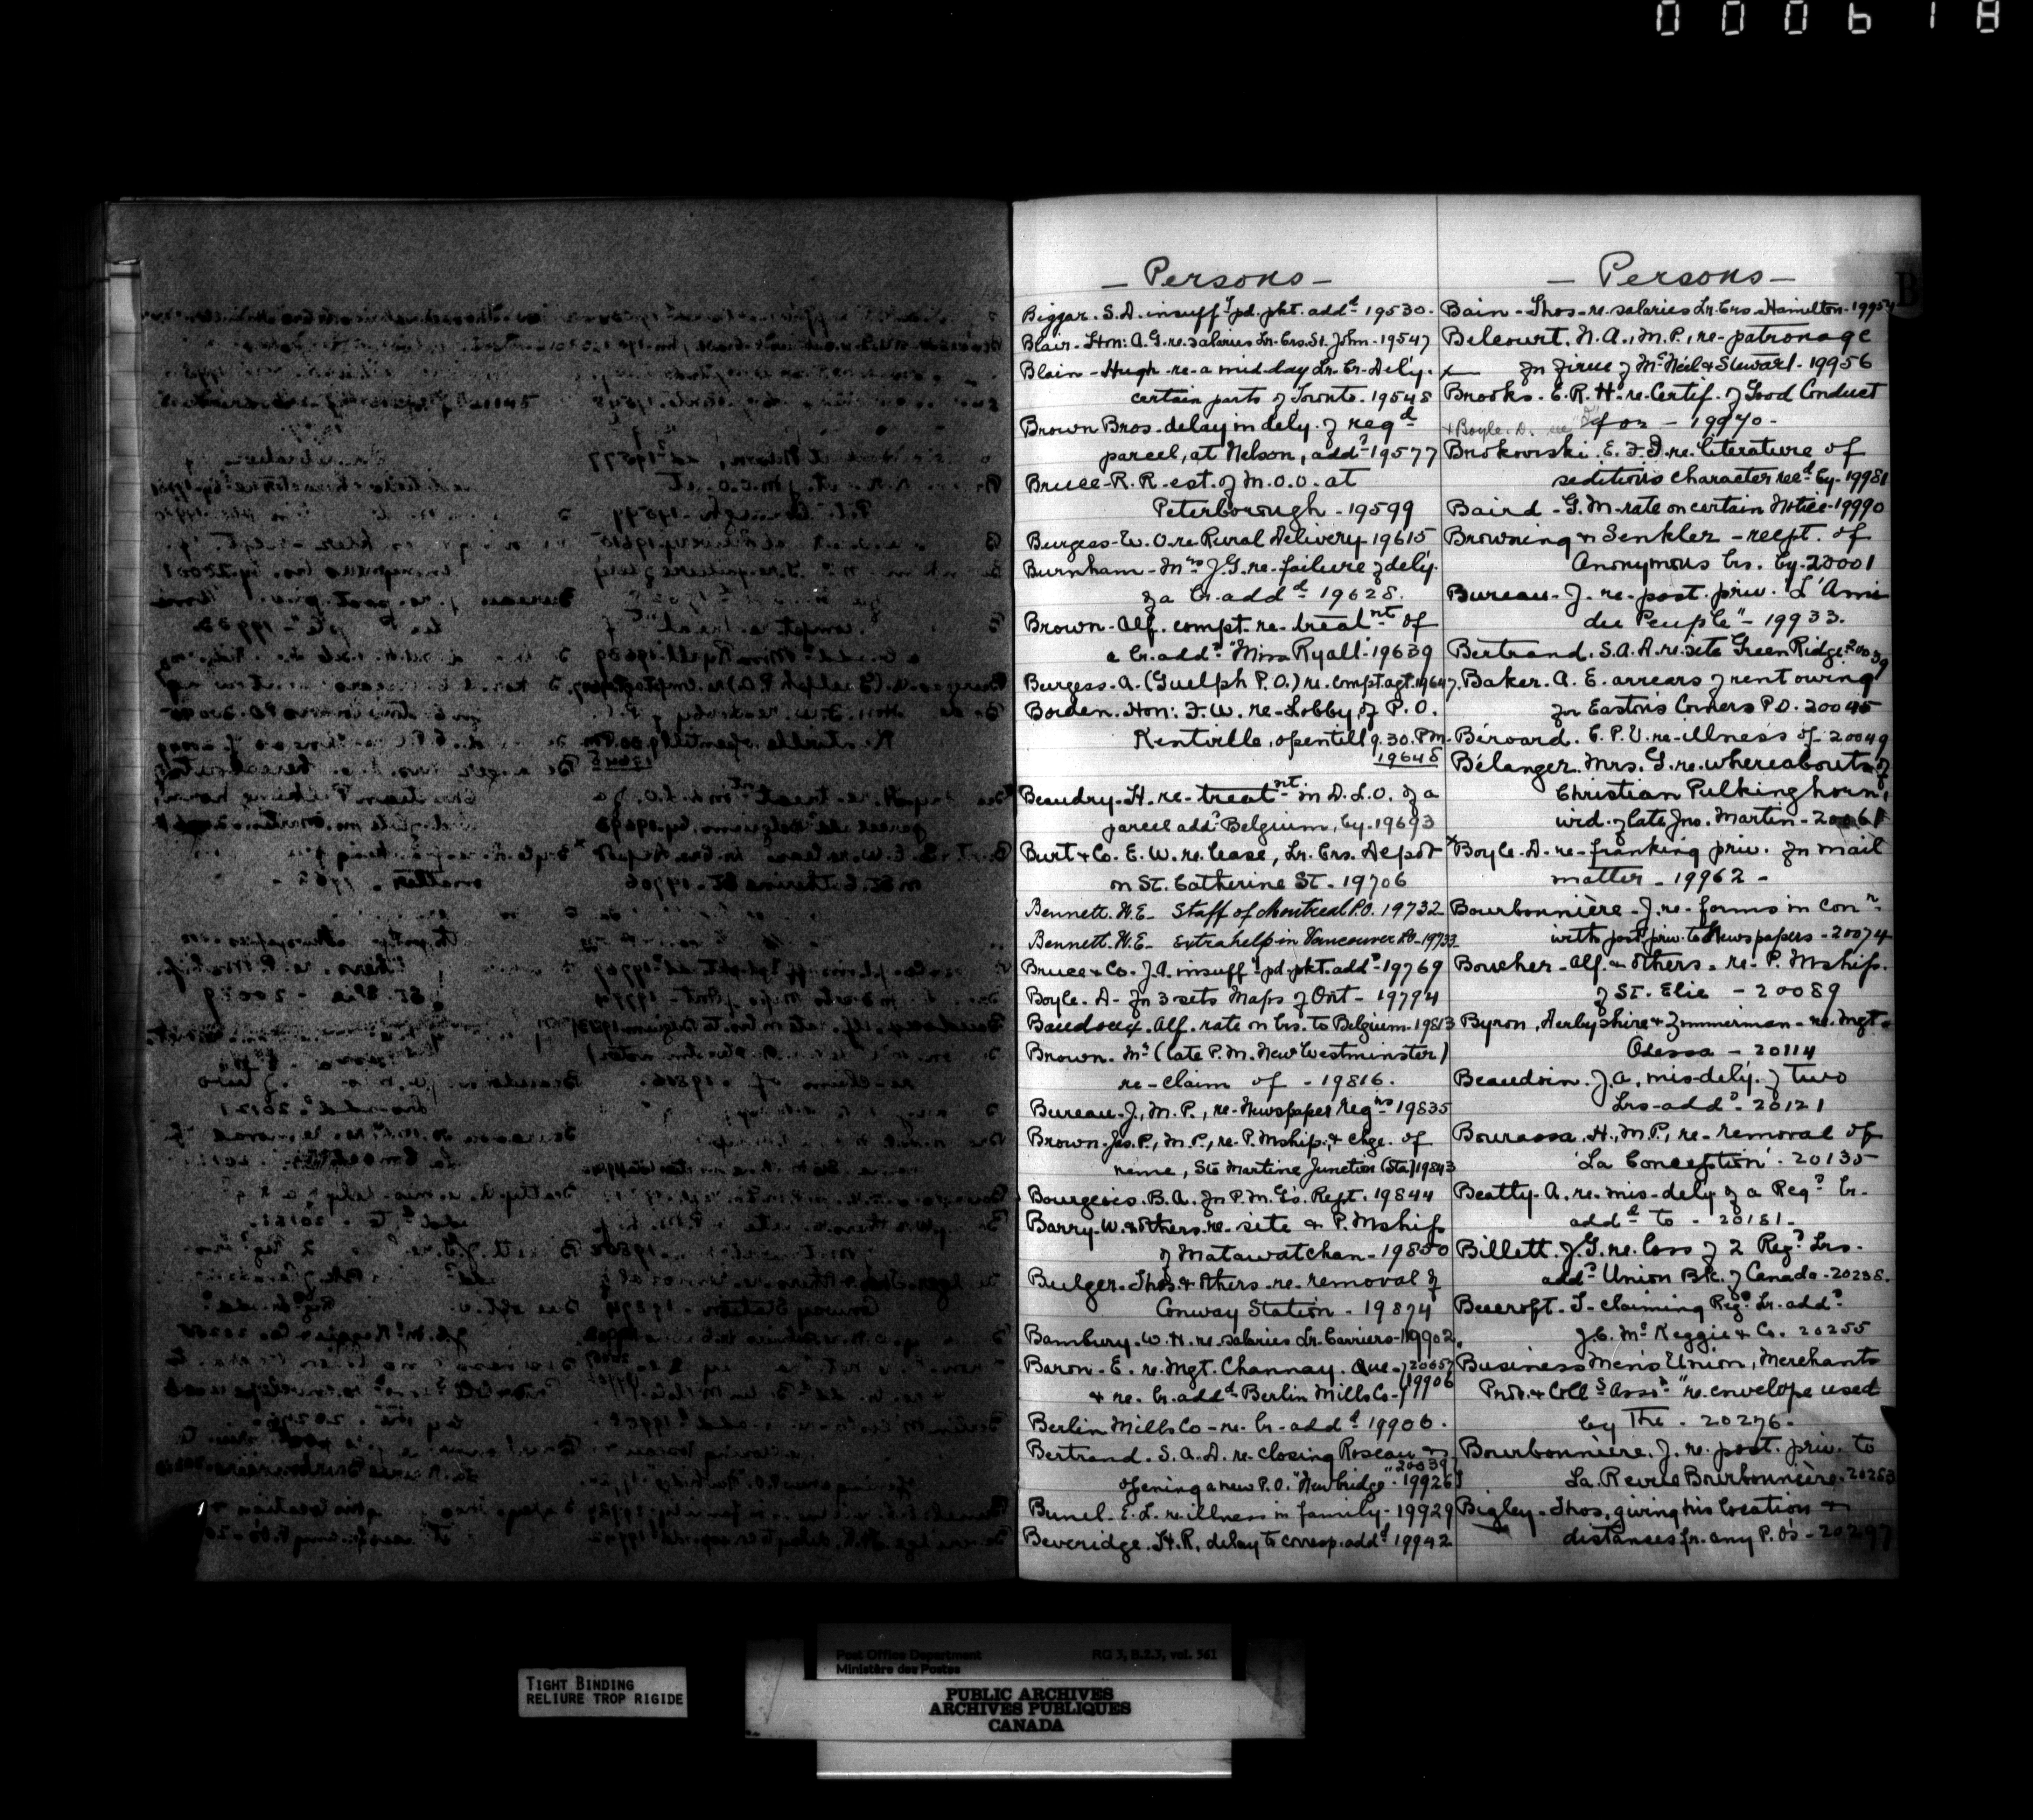 000618
— Persons —
Biggar. S. D. insuff.t pd. pkt. add.d 19530.
Blair. Hon: A. G. re. salaries Lr. Crs. St. John - 19547
Blain - Hugh - re - a mid-day Lr. Cr. Dely.
certain parts of Toronto. 19548
Brown Bros. delay in dely. of reg.d
parcel, at Nelson, add.d 19577
Bruce - R. R. est. of M.O.O. at
Peterborough - 19599
Burgess - W. O. re. Rural Delivery 19615
Burnham - Mrs J. G. re - failure of dely.
of a lr. add.d 19628.
Brown - Alf. compt. re - treat.nt of
a lr. add.d "Miss Ryall" 19639
Burgess. A. (Guelph P.O.) re. compt. agt. 19647.
Borden. Hon: F. W. re - Lobby, of P.O.
Kentville, open till 9.30. P.M.
19648
Beaudry - H. re - treat.nt in D.L.O. of a
parcel add.d Belgium, by - 19693
Burt & Co. E. W. re. lease, Lr. Crs. Depot
on St. Catherine St. - 19706
Bennett. W. E. - Staff of Montreal P.O. 19732
Bennett. W. E. - Extra help in Vancouver P.O. - 19733
Bruce & Co. J. A. insuff.t pd. pkt. add.d - 19769
Boyle. D - for 3 sets Maps of Ont - 19794
Baudoux. Alf. rate on lrs. to Belgium. 19813
Brown. Mr (late P.M. New Westminster)
re - claim of - 19816.
Bureau - J., M.P., re - Newspaper Reg.ns 19835
Brown - Jas. P., M.P., re - P. Mship. & chge. of
name, Ste Martine Junction (Sta) 19843
Bourgeois. B. A. for P.M.G's. Rept. 19844
Barry. W. & Others. re. site & P. Mship
of Matawatchan - 19850
Bulger. Thos. & Others. re - removal of
Conway Station - 19874
Bambury. W. H. re. salaries Lr. Carriers - 19902.
Baron. E. re. Mgt. Channay. Que - 20057
& re. lr. add.d Berlin Mills Co - 19906
Berlin Mills Co - re - lr - add.d 19906.
Bertrand. S. A. D. re - closing Roseau &
20039
opening a new P.O. "New bridge" - 19926
Bunel - E. L. re. illness in family - 19929
Beveridge. H. R. delay to corresp. add.d 19942
— Persons —
B
Bain - Thos - re. salaries Lr. Crs. Hamilton - 19954
Belcourt. N. A., M.P., re - patronage
x for firm of McNeil & Stewart - 19956
Brooks. E. R. H. - re. Certif. of Good Conduct
x Boyle. D. for - 19970 -
Brokovski. E. F. D. re. literature of
seditious character rec.d by - 19981
Baird - G. M - rate on certain Notice - 19990
Browning & Senkler - recpt. of
Anonymous lrs. by - 20001
Bureau - J. re - post. priv. "L'Ami
du Peuple" - 19933.
Bertrand. S. A. D. re. site Green Ridge - 20039
Baker. A. E. arrears of rent owing
for Easton's Corners P.O. 20045
Béroard. E. P. V. re - illness of - 20049
Bélanger. Mrs. G. re. whereabouts of
Christian Pulkinghorn,
wid. of late Jno. Martin - 20061
x Boyle - D - re - franking priv. for mail
matter - 19962 -
Bourbonnière - J. re - forms in con.n
with post priv. to Newspapers - 20074
Boucher - Alf. & Others - re - P. Mship.
of St. Elie - 20089
Byron, Derbyshire & Zimmerman - re. Mgt.
Odessa - 20114
Beaudoin. J. a. mis-dely. of two
Lrs - add.d - 20121
Bourassa. H., M.P., re - removal of
'La Conception' - 20135
Beatty. A. re. mis-dely of a Reg.d lr.
add.d to - 20181 -
Billett. J. G. re. loss of 2 Reg.d Lrs.
add.d Union Bk. of Canada - 20238.
Beecroft - T - claiming Reg.d Lr. add.d
J. C. McKeggie & Co. 20255
Business Men's Union, Merchants
Prot. & Coll.s Assn "re. envelope used
by The - 20276.
Bourbonnière. J. re. post. priv. to
La Revue Bourbonnière. 20283
Bigley - Thos, giving his location &
distances fr. any P.O's - 20297
TIGHT BINDING
RELIURE TROP RIGIDE
Post Office Department
Ministère des Postes
RG 3, B.2.3, vol. 561
PUBLIC ARCHIVES
ARCHIVES PUBLIQUES
CANADA